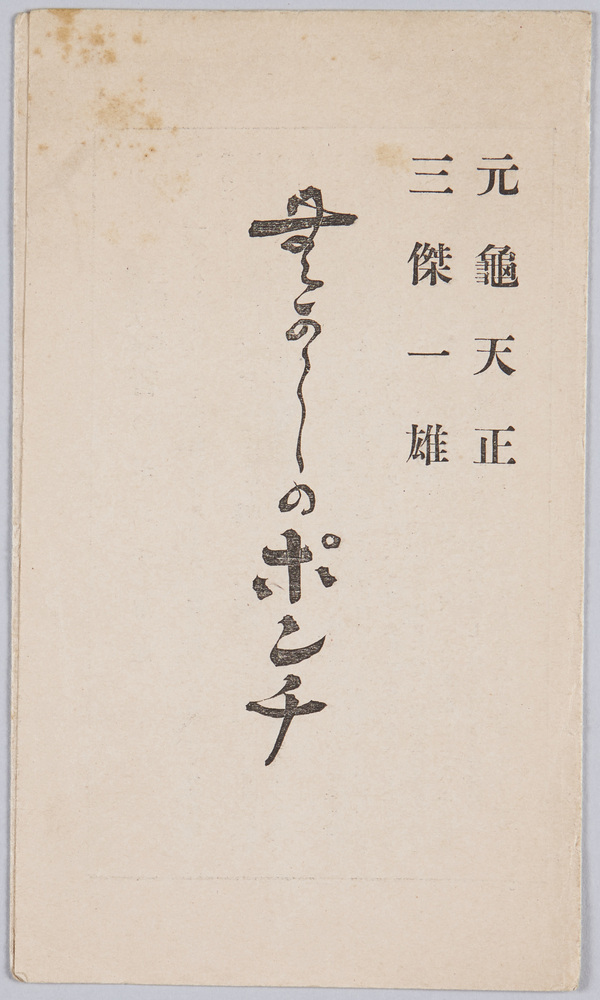 元龜天正
三傑一雄
むかしのポンチ